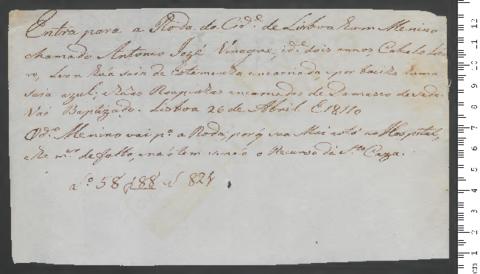 Entra para a Roda da Cid.e de Lisboa hum Menino
chamado Antonio José Vinagre, id.e dois annos Cabelo Lou
ro, Leva hua Saia de Estamenha encarnada, por baixo huma
Saia azul, e Roupinhas encarnadas de Damasco de seda
Vai Baptizado. Lisboa 26 de Abril
O d.o Menino vai p.a a Roda, porq sua Mai está no Hospital
de facto, e não tem senão o Recurso da S.ta Caza.
L.o 58 f 188 N 821